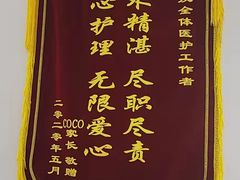 全体医护工作者
术精湛 尽职尽责
心护理 无限爱心
COCO家长 敬赠
二零二零年五月